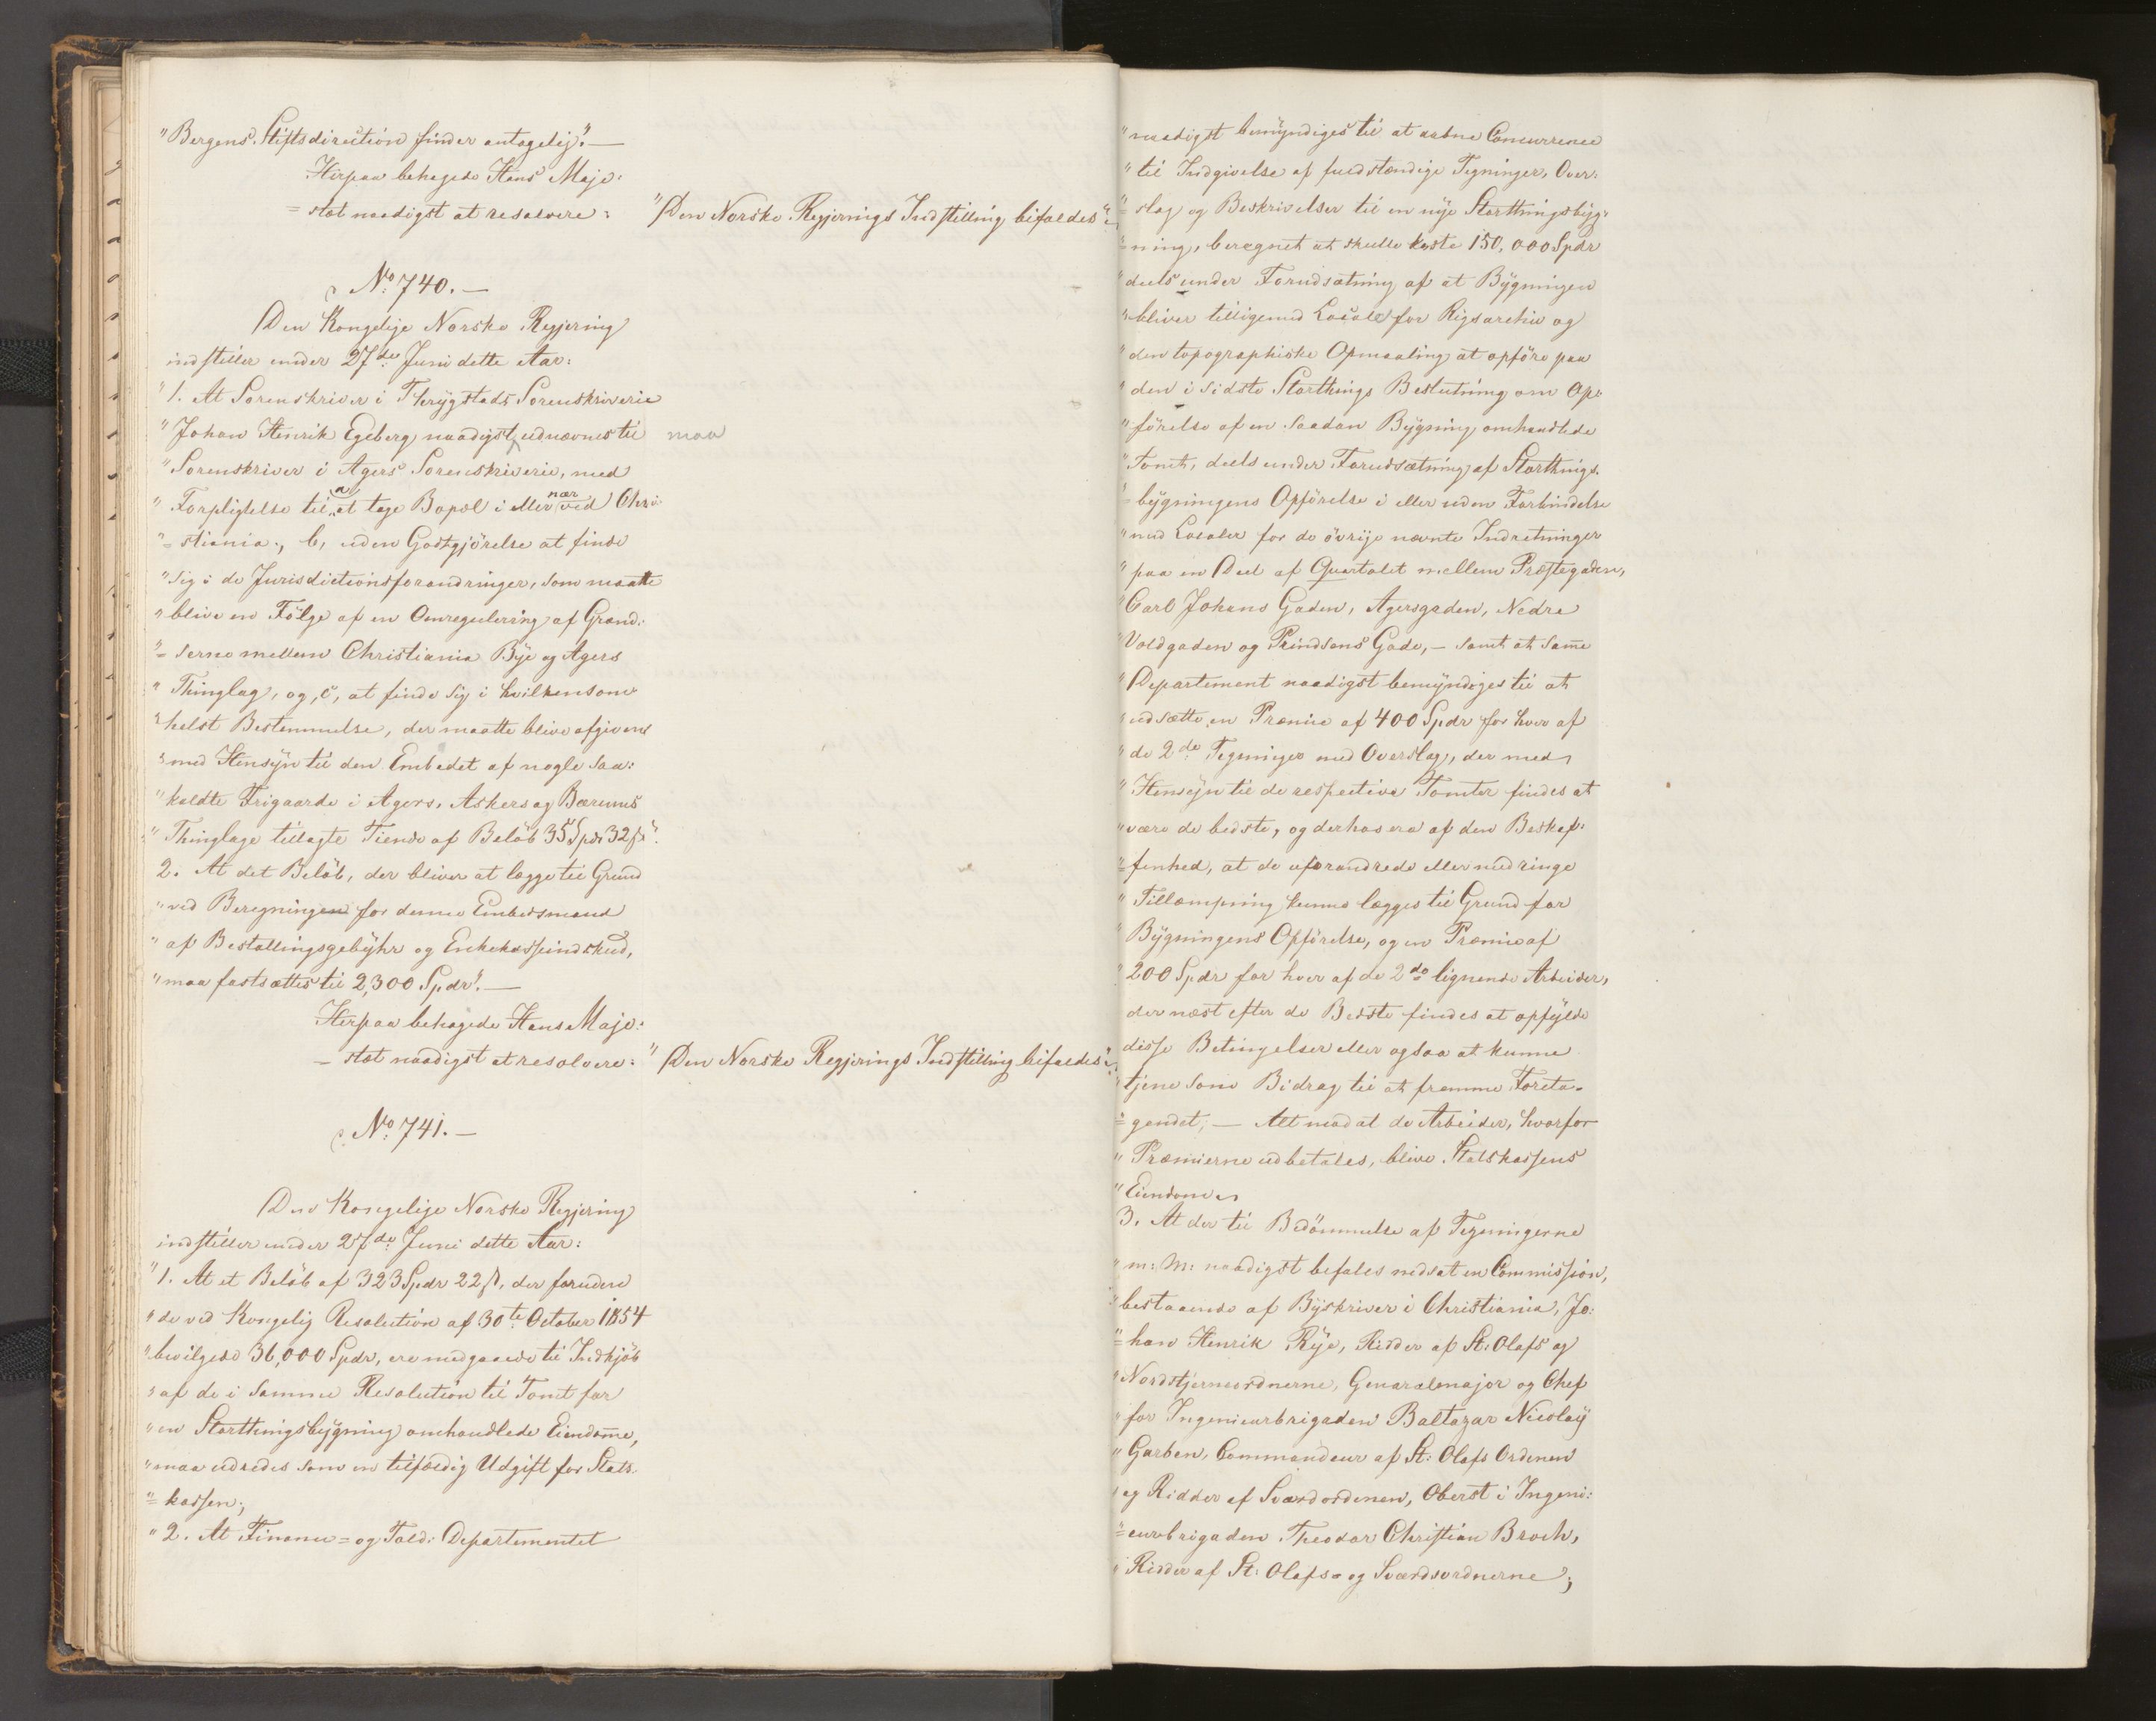 "Bergens Stiftsdirection finder antagelig". —
Herpaa behagede Hans Maje:
= stæt naadigst at resolvere: "Den Norske Regjerings Indstilling bifaldes".
No 740. —
Den Kongelige Norske Regjering
indstiller under 27de Juni dette Aar:
"1. At Sorenskriver i Thrygstads Sorenskriverie
"Johan Henrik Egeberg naadigst udnævnes til maa
"Sorenskriver i Agers Sorenskriverie, med
"Forpligtelse til, a, at tage Bopæl i eller nær ved Chri-
"= stiania, b, uden Godtgjörelse at finde
"sig i de Jurisdictionsforandringer, som maatte
"blive en Fölge af en Omregulering af Grænd:
"= serne mellem Christiania Bye og Agers
"Thinglag, og, c, at finde sig i hvilkensom-
"helst Bestemmelse, der maatte blive afgiven
"med Hensyn til den Embedet af nogle saa:
"kaldte Frigaarde i Agers, Askers og Bærums
"Thinglage tillagte Tiende af Belöb 35 Spdr 32 s".
2. At det Belöb, der bliver at lægge til Grund
"ved Beregningen for denne Embedsmand
"af Bestallingsgebyhr og Enkekasseindskud,
"maa fastsættes til 2,300 Spdr". —
Herpaa behagede Hans Maje:
— stæt naadigst at resolvere: "Den Norske Regjerings Indstilling bifaldes".
No 741. —
Den Kongelige Norske Regjering
indstiller under 27de Juni dette Aar:
"1. At et Belöb af 323 Spdr 22 s, der foruden
"de ved Kongelig Resolution af 30te October 1854
"bevilgede 36,000 Spdr, ere medgaaede til Indkjöb
"af de i samme Resolution til Tomt for
"en Storthingsbygning omhandlede Eiendom̄e,
"maa udredes som en tilfældig Udgift for Stats-
"= kassen;
"2. At Finance= og Told: Departementet
"naadigst bemyndiges til at aabne Concurrence
"til Indgivelse af fuldstændige Tegninger, Over:
"= slag og Beskrivelser til en nye Storthingsbyg:
"= ning, beregnet at skulle koste 150,000 Spdr
"deels under Forudsætning af at Bygningen
"bliver tilligemed Locale for Rigsarchiv og
"den topographiske Opmaaling at opföre paa
"den i sidste Storthings Beslutning om Op:
"förelse af en saadan Bygning omhandlede
"Tomt, deels under Forudsætning af Storthings-
"= bygningens Opförelse i eller uden Forbindelse
"med Localer for de övrige nævnte Indretninger
"paa en Deel af Quartalet mellem Præstegaden,
"Carl Johans Gaden, Agersgaden, Nedre
"Voldgaden og Prindsens Gade, — samt at sam̄e
"Departement naadigst bemyndiges til at
"udsætte en Præmie af 400 Spdr for hver af
"de 2de Tegninger med Overslag, der med
"Hensyn til de respective Tomter findes at
"være de bedste, og derhos ere af den Beskaf:
"= fenhed, at de uforandrede eller med ringe
"Tillæmpning kunne lægges til Grund for
"Bygningens Opförelse, og en Præmie af
"200 Spdr for hver af de 2de lignende Arbeider,
der næst efter de Bedste findes at opfylde
disse Betingelser eller ogsaa at kunne
"tjene som Bidrag til at fremme Foreta-
"= gendet; — Alt mod at de Arbeider, hvorfor
"Præmierne udbetales, blive Statskassens
"Eiendom.
3. At der til Bedömmelse af Tegningerne
"m: M: naadigst befales nedsat en Commission,
"bestaaende af Byskriver i Christiania, Jo:
"= han Henrik Rye, Ridder af St: Olafs og
"Nordstjerneordnerne, Generalmajor og Chef
"for Ingenieurbrigaden Baltazar Nicolay
"Garben, Commandeur af St: Olafs Ordenen
"og Ridder af Sværdordenen, Oberst i Ingeni:
"= eurbrigaden Theodor Christian Broch,
"Ridder af St: Olafs= og Sværdsordnerne;